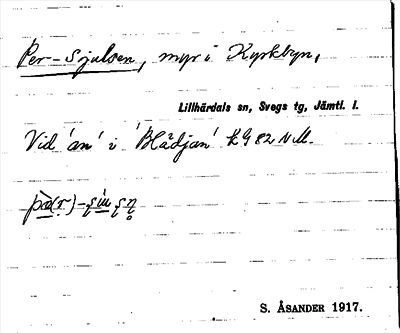 Per-Sjulsen, myr i Kyrkbyn,
Lillhärdals sn, Svegs tg, Jämtl. l.
Vid 'an' i 'Blädjan' kg 82 N M.
pæ(r)-
S. ÅSANDER 1917.